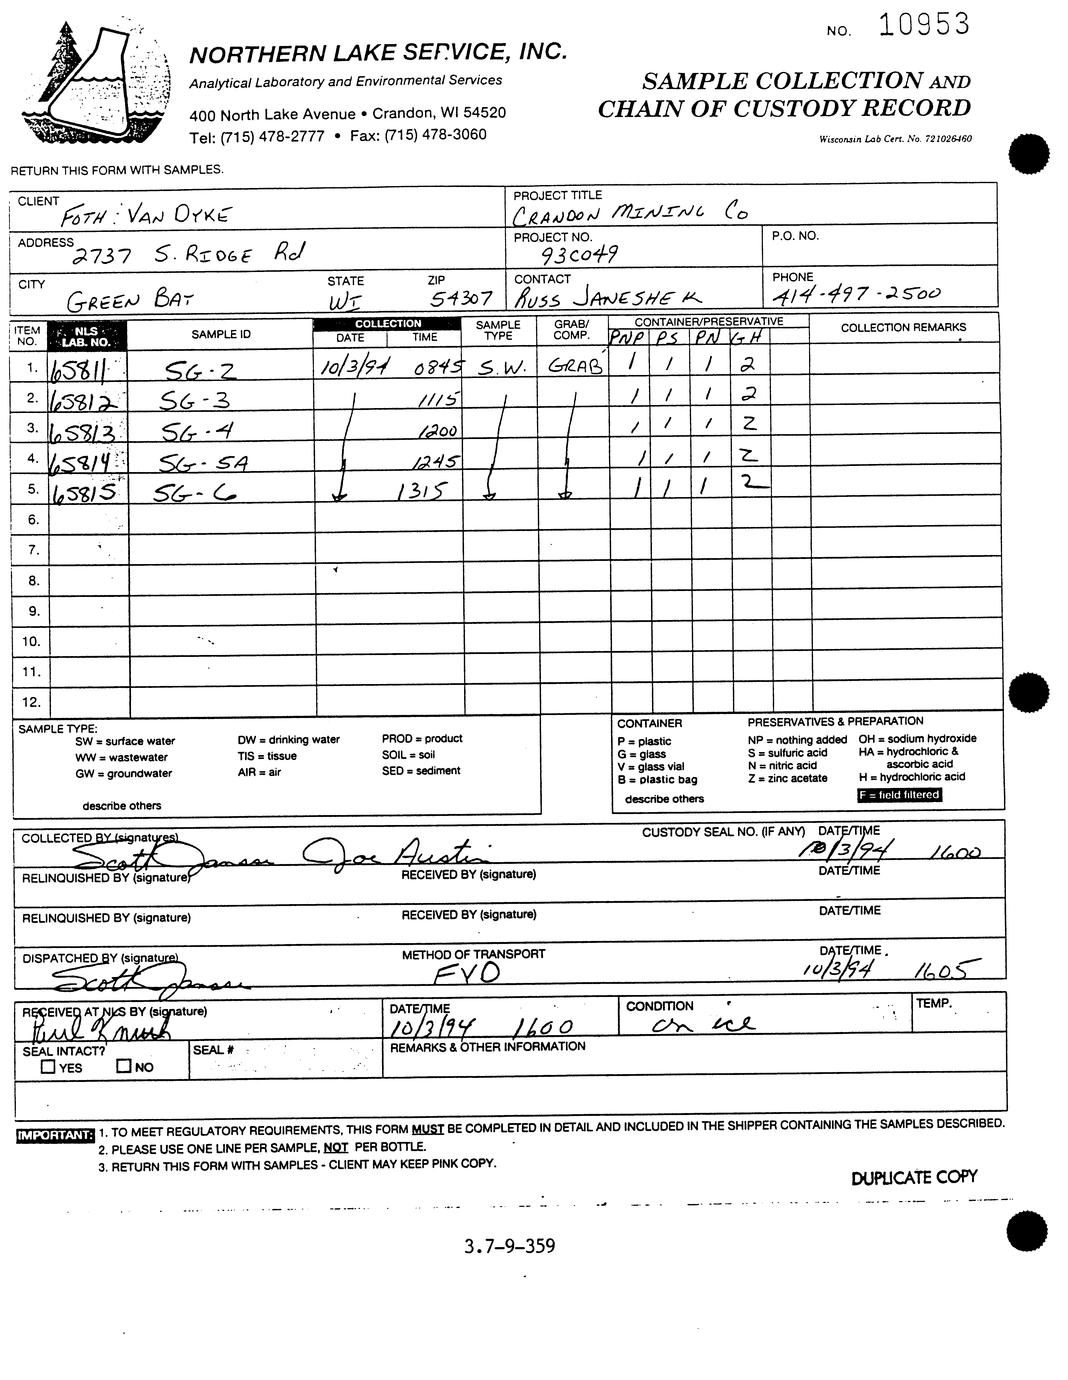 NO. 10953
NORTHERN LAKE SERVICE, INC.
Analytical Laboratory and Environmental Services
400 North Lake Avenue • Crandon, WI 54520
Tel: (715) 478-2777 • Fax: (715) 478-3060
SAMPLE COLLECTION AND
CHAIN OF CUSTODY RECORD
Wisconsin Lab Cert. No. 721026460
RETURN THIS FORM WITH SAMPLES.
CLIENT FOTH : VAN DYKE PROJECT TITLE CRANDON MINING CO
ADDRESS 2737 S. RIDGE Rd PROJECT NO. 93C049 P.O. NO.
CITY GREEN BAY STATE WI ZIP 54307 CONTACT RUSS JANESHEK PHONE 414-497-2500
ITEM NO. NLS LAB. NO. SAMPLE ID COLLECTION DATE TIME SAMPLE TYPE GRAB/COMP. CONTAINER/PRESERVATIVE PNP PS PN GH COLLECTION REMARKS
1. 65811 SG-2 10/3/94 0845 S.W. GRAB 1 1 1 2
2. 65812 SG-3 1115 1 1 1 2
3. 65813 SG-4 1200 1 1 1 2
4. 65814 SG-5A 1245 1 1 1 2
5. 65815 SG-6 1315 1 1 1 2
6.
7.
8.
9.
10.
11.
12.
SAMPLE TYPE:
SW = surface water DW = drinking water PROD = product
WW = wastewater TIS = tissue SOIL = soil
GW = groundwater AIR = air SED = sediment
describe others
CONTAINER PRESERVATIVES & PREPARATION
P = plastic NP = nothing added OH = sodium hydroxide
G = glass S = sulfuric acid HA = hydrochloric &
V = glass vial N = nitric acid ascorbic acid
B = plastic bag Z = zinc acetate H = hydrochloric acid
describe others F = field filtered
COLLECTED BY (signatures) CUSTODY SEAL NO. (IF ANY) DATE/TIME
Scott Jansen Joe Austin 10/3/94 1600
RELINQUISHED BY (signature) RECEIVED BY (signature) DATE/TIME
RELINQUISHED BY (signature) RECEIVED BY (signature) DATE/TIME
DISPATCHED BY (signature) METHOD OF TRANSPORT DATE/TIME
Scott Jansen FVD 10/3/94 1605
RECEIVED AT NLS BY (signature) DATE/TIME CONDITION TEMP.
Paul 10/3/94 1600 on ice
SEAL INTACT? SEAL # REMARKS & OTHER INFORMATION
YES NO
IMPORTANT: 1. TO MEET REGULATORY REQUIREMENTS, THIS FORM MUST BE COMPLETED IN DETAIL AND INCLUDED IN THE SHIPPER CONTAINING THE SAMPLES DESCRIBED.
2. PLEASE USE ONE LINE PER SAMPLE, NOT PER BOTTLE.
3. RETURN THIS FORM WITH SAMPLES - CLIENT MAY KEEP PINK COPY.
DUPLICATE COPY
3.7-9-359